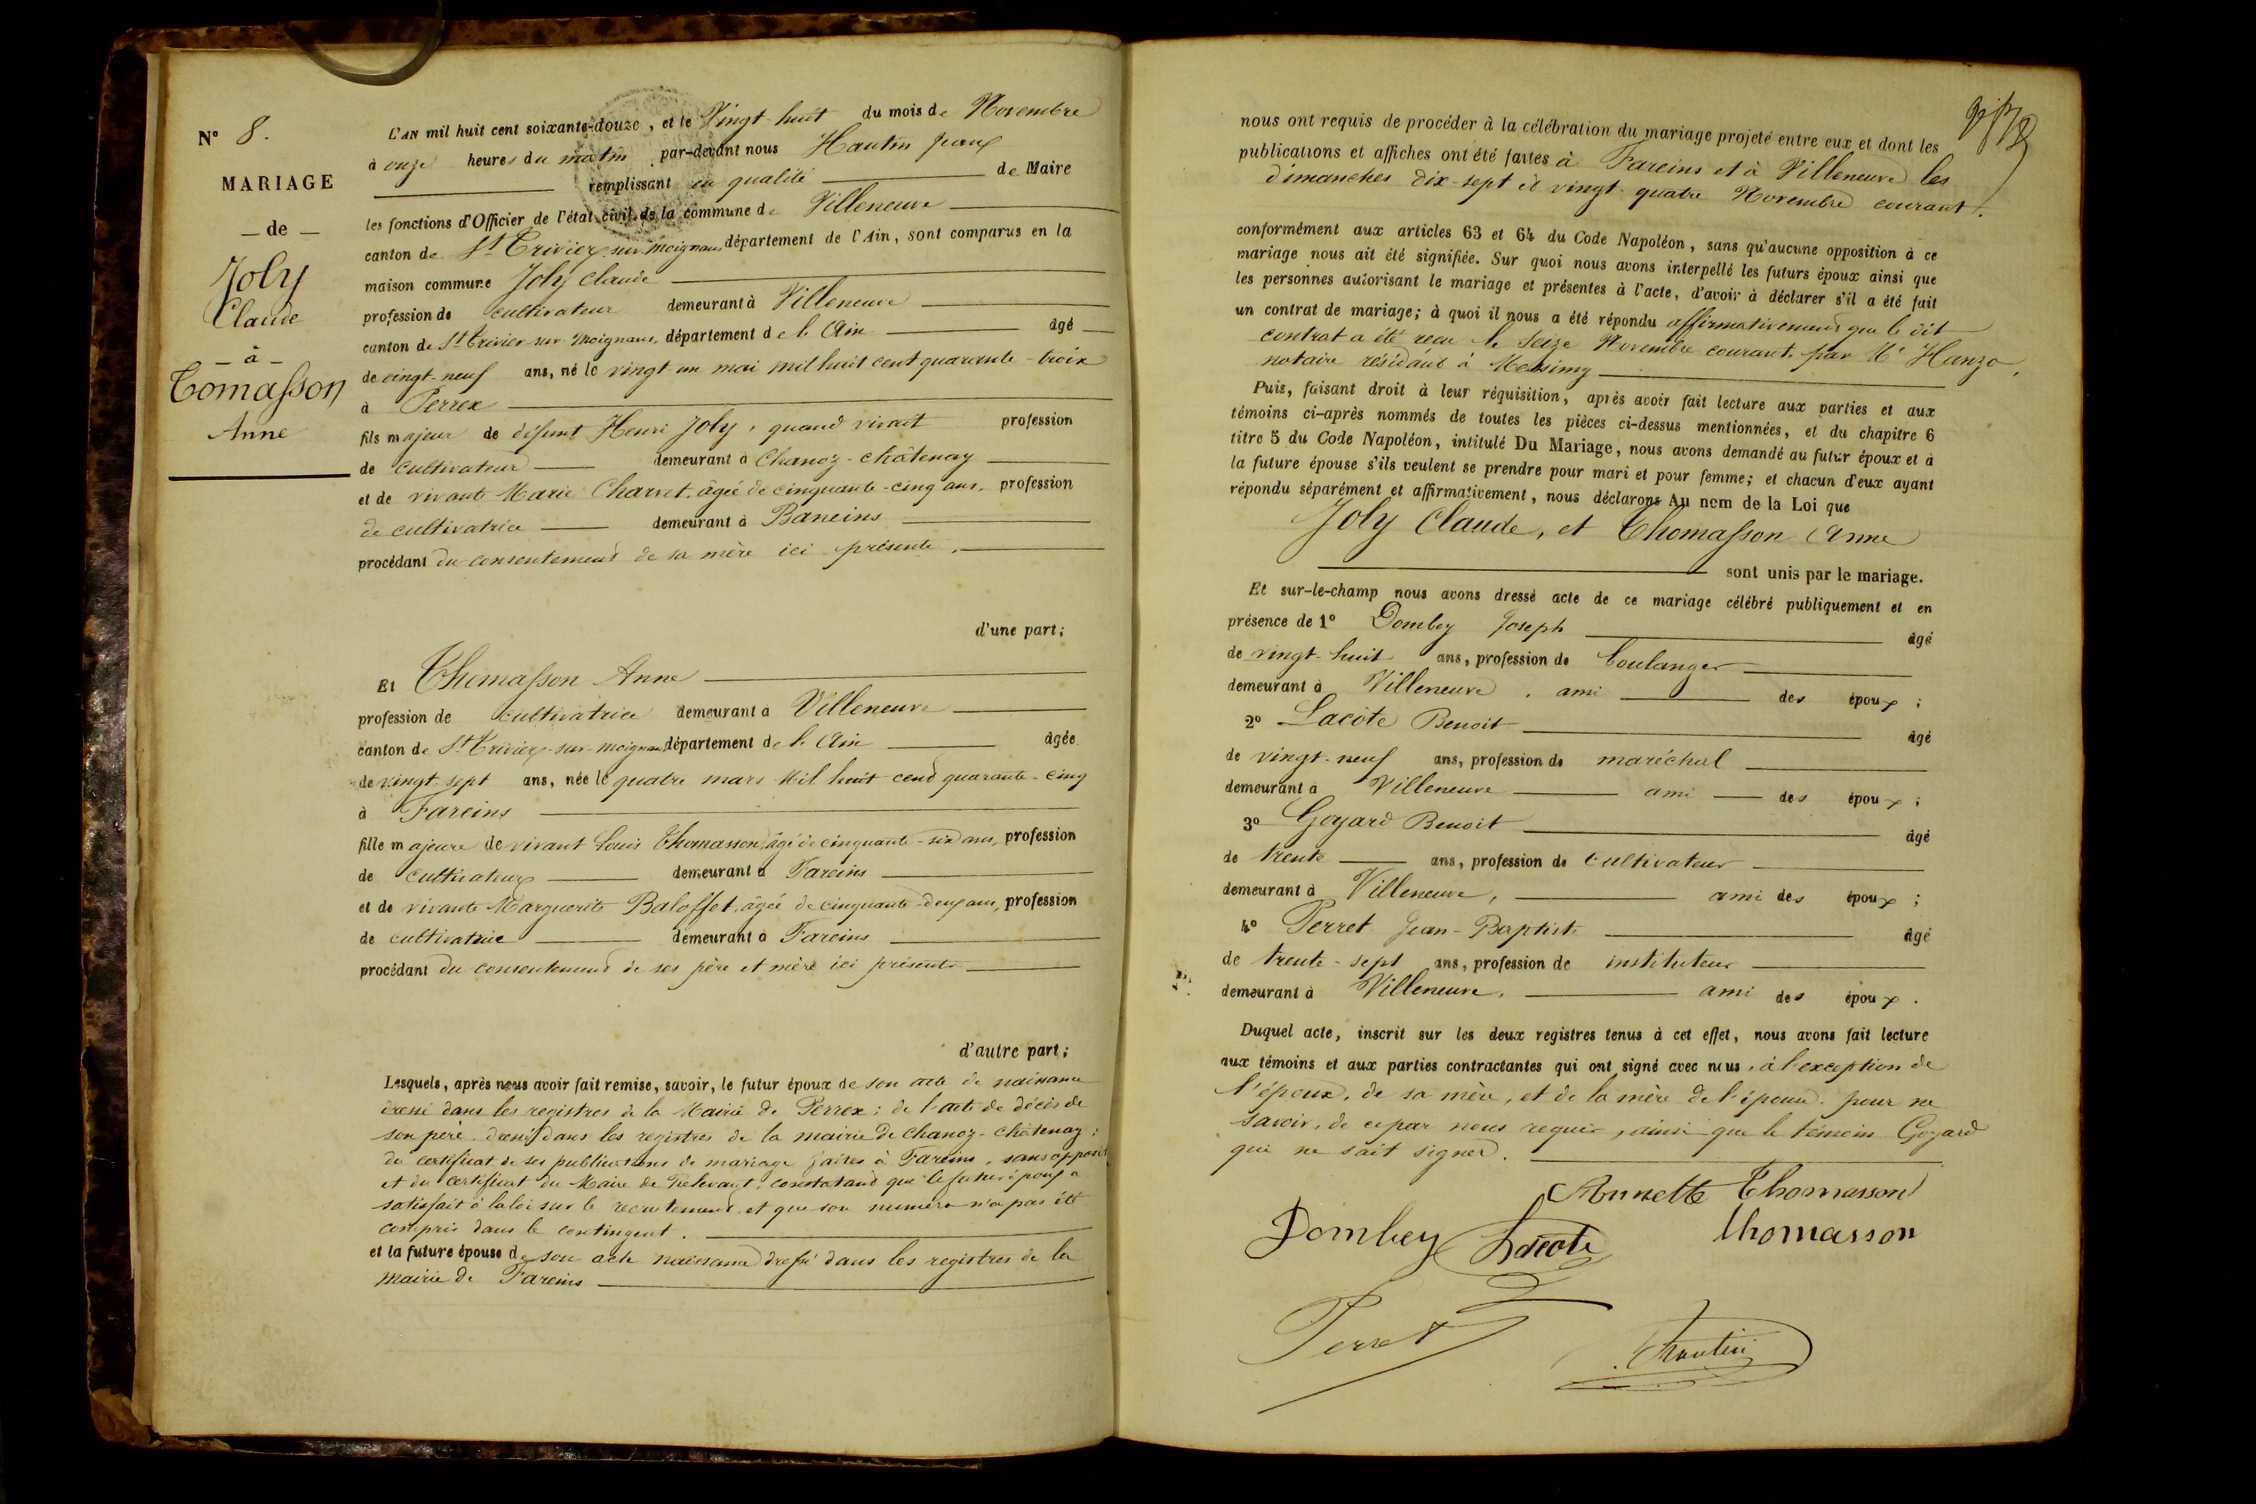 N° 8.
MARIAGE
— de —
Joly
Claude
— à —
Tomasson
Anne
L'AN mil huit cent soixante-douze, et le Vingt-huit du mois de Novembre
à onze heures du matin par-devant nous Hautin
remplissant en qualité de Maire
les fonctions d'Officier de l'état civil de la commune de Villeneuve
canton de St Trivier-sur-Moignans département de l'Ain, sont comparus en la
maison commune Joly Claude
profession de cultivateur demeurant à Villeneuve
canton de St Trivier-sur-Moignans, département de l'Ain âgé
de vingt-neuf ans, né le vingt un mai mil huit cent quarante-trois
à Perrex
fils majeur de défunt Henri Joly, quand vivait profession
de cultivateur demeurant à Chanoz-Châtenay
et de vivante Marie Charvet, âgée de cinquante-cinq ans, profession
de cultivatrice demeurant à Baneins
procédant du consentement de sa mère ici présente.
d'une part;
Et Thomasson Anne
profession de cultivatrice demeurant à Villeneuve
canton de St Trivier-sur-Moignans département de l'Ain âgée
de vingt-sept ans, née le quatre mars mil huit cent quarante-cinq
à Fareins
fille majeure de vivant Louis Thomasson, âgé de cinquante-six ans, profession
de cultivateur demeurant à Fareins
et de vivante Marguerite Baloffet, âgée de cinquante-deux ans, profession
de cultivatrice demeurant à Fareins
procédant du consentement de ses père et mère ici présents
d'autre part;
Lesquels, après nous avoir fait remise, savoir, le futur époux de son acte de naissance
dressé dans les registres de la Mairie de Perrex; de l'acte de décès de
son père dressé dans les registres de la mairie de Chanoz-Châtenay;
du certificat de ses publications de mariage faites à Fareins, sans opposit
et du certificat du Maire de Relevant, constatant que le futur époux a
satisfait à la loi sur le recrutement et que son numéro n'a pas été
compris dans le contingent.
et la future épouse de son acte naissance dressé dans les registres de la
mairie de Fareins
nous ont requis de procéder à la célébration du mariage projeté entre eux et dont les
publications et affiches ont été faites à Fareins et à Villeneuve les
dimanches dix-sept et vingt-quatre Novembre courant.
conformément aux articles 63 et 64 du Code Napoléon, sans qu'aucune opposition à ce
mariage nous ait été signifiée. Sur quoi nous avons interpellé les futurs époux ainsi que
les personnes autorisant le mariage et présentes à l'acte, d'avoir à déclarer s'il a été fait
un contrat de mariage; à quoi il nous a été répondu affirmativement que le dit
contrat a été reçu le seize Novembre courant par Me Hanzo,
notaire résidant à Messimy
Puis, faisant droit à leur réquisition, après avoir fait lecture aux parties et aux
témoins ci-après nommés de toutes les pièces ci-dessus mentionnées, et du chapitre 6
titre 5 du Code Napoléon, intitulé Du Mariage, nous avons demandé au futur époux et à
la future épouse s'ils veulent se prendre pour mari et pour femme; et chacun d'eux ayant
répondu séparément et affirmativement, nous déclarons Au nom de la Loi que
Joly Claude, et Thomasson Anne
sont unis par le mariage.
Et sur-le-champ nous avons dressé acte de ce mariage célébré publiquement et en
présence de 1° Dombey Joseph âgé
de vingt-huit ans, profession de boulanger
demeurant à Villeneuve, ami des époux;
2° Lacôte Benoit âgé
de vingt-neuf ans, profession de maréchal
demeurant à Villeneuve ami des époux;
3° Goyard Benoit âgé
de trente ans, profession de cultivateur
demeurant à Villeneuve, ami des époux;
4° Perret Jean-Baptiste âgé
de trente-sept ans, profession de instituteur
demeurant à Villeneuve, ami des époux.
Duquel acte, inscrit sur les deux registres tenus à cet effet, nous avons fait lecture
aux témoins et aux parties contractantes qui ont signé avec nous, à l'exception de
l'époux, de sa mère, et de la mère de l'épouse pour ne
savoir, de ce par nous requis, ainsi que le témoin Goyard
qui ne sait signer.
Annette Thomasson
Dombey Lacote thomasson
Perret Hautin